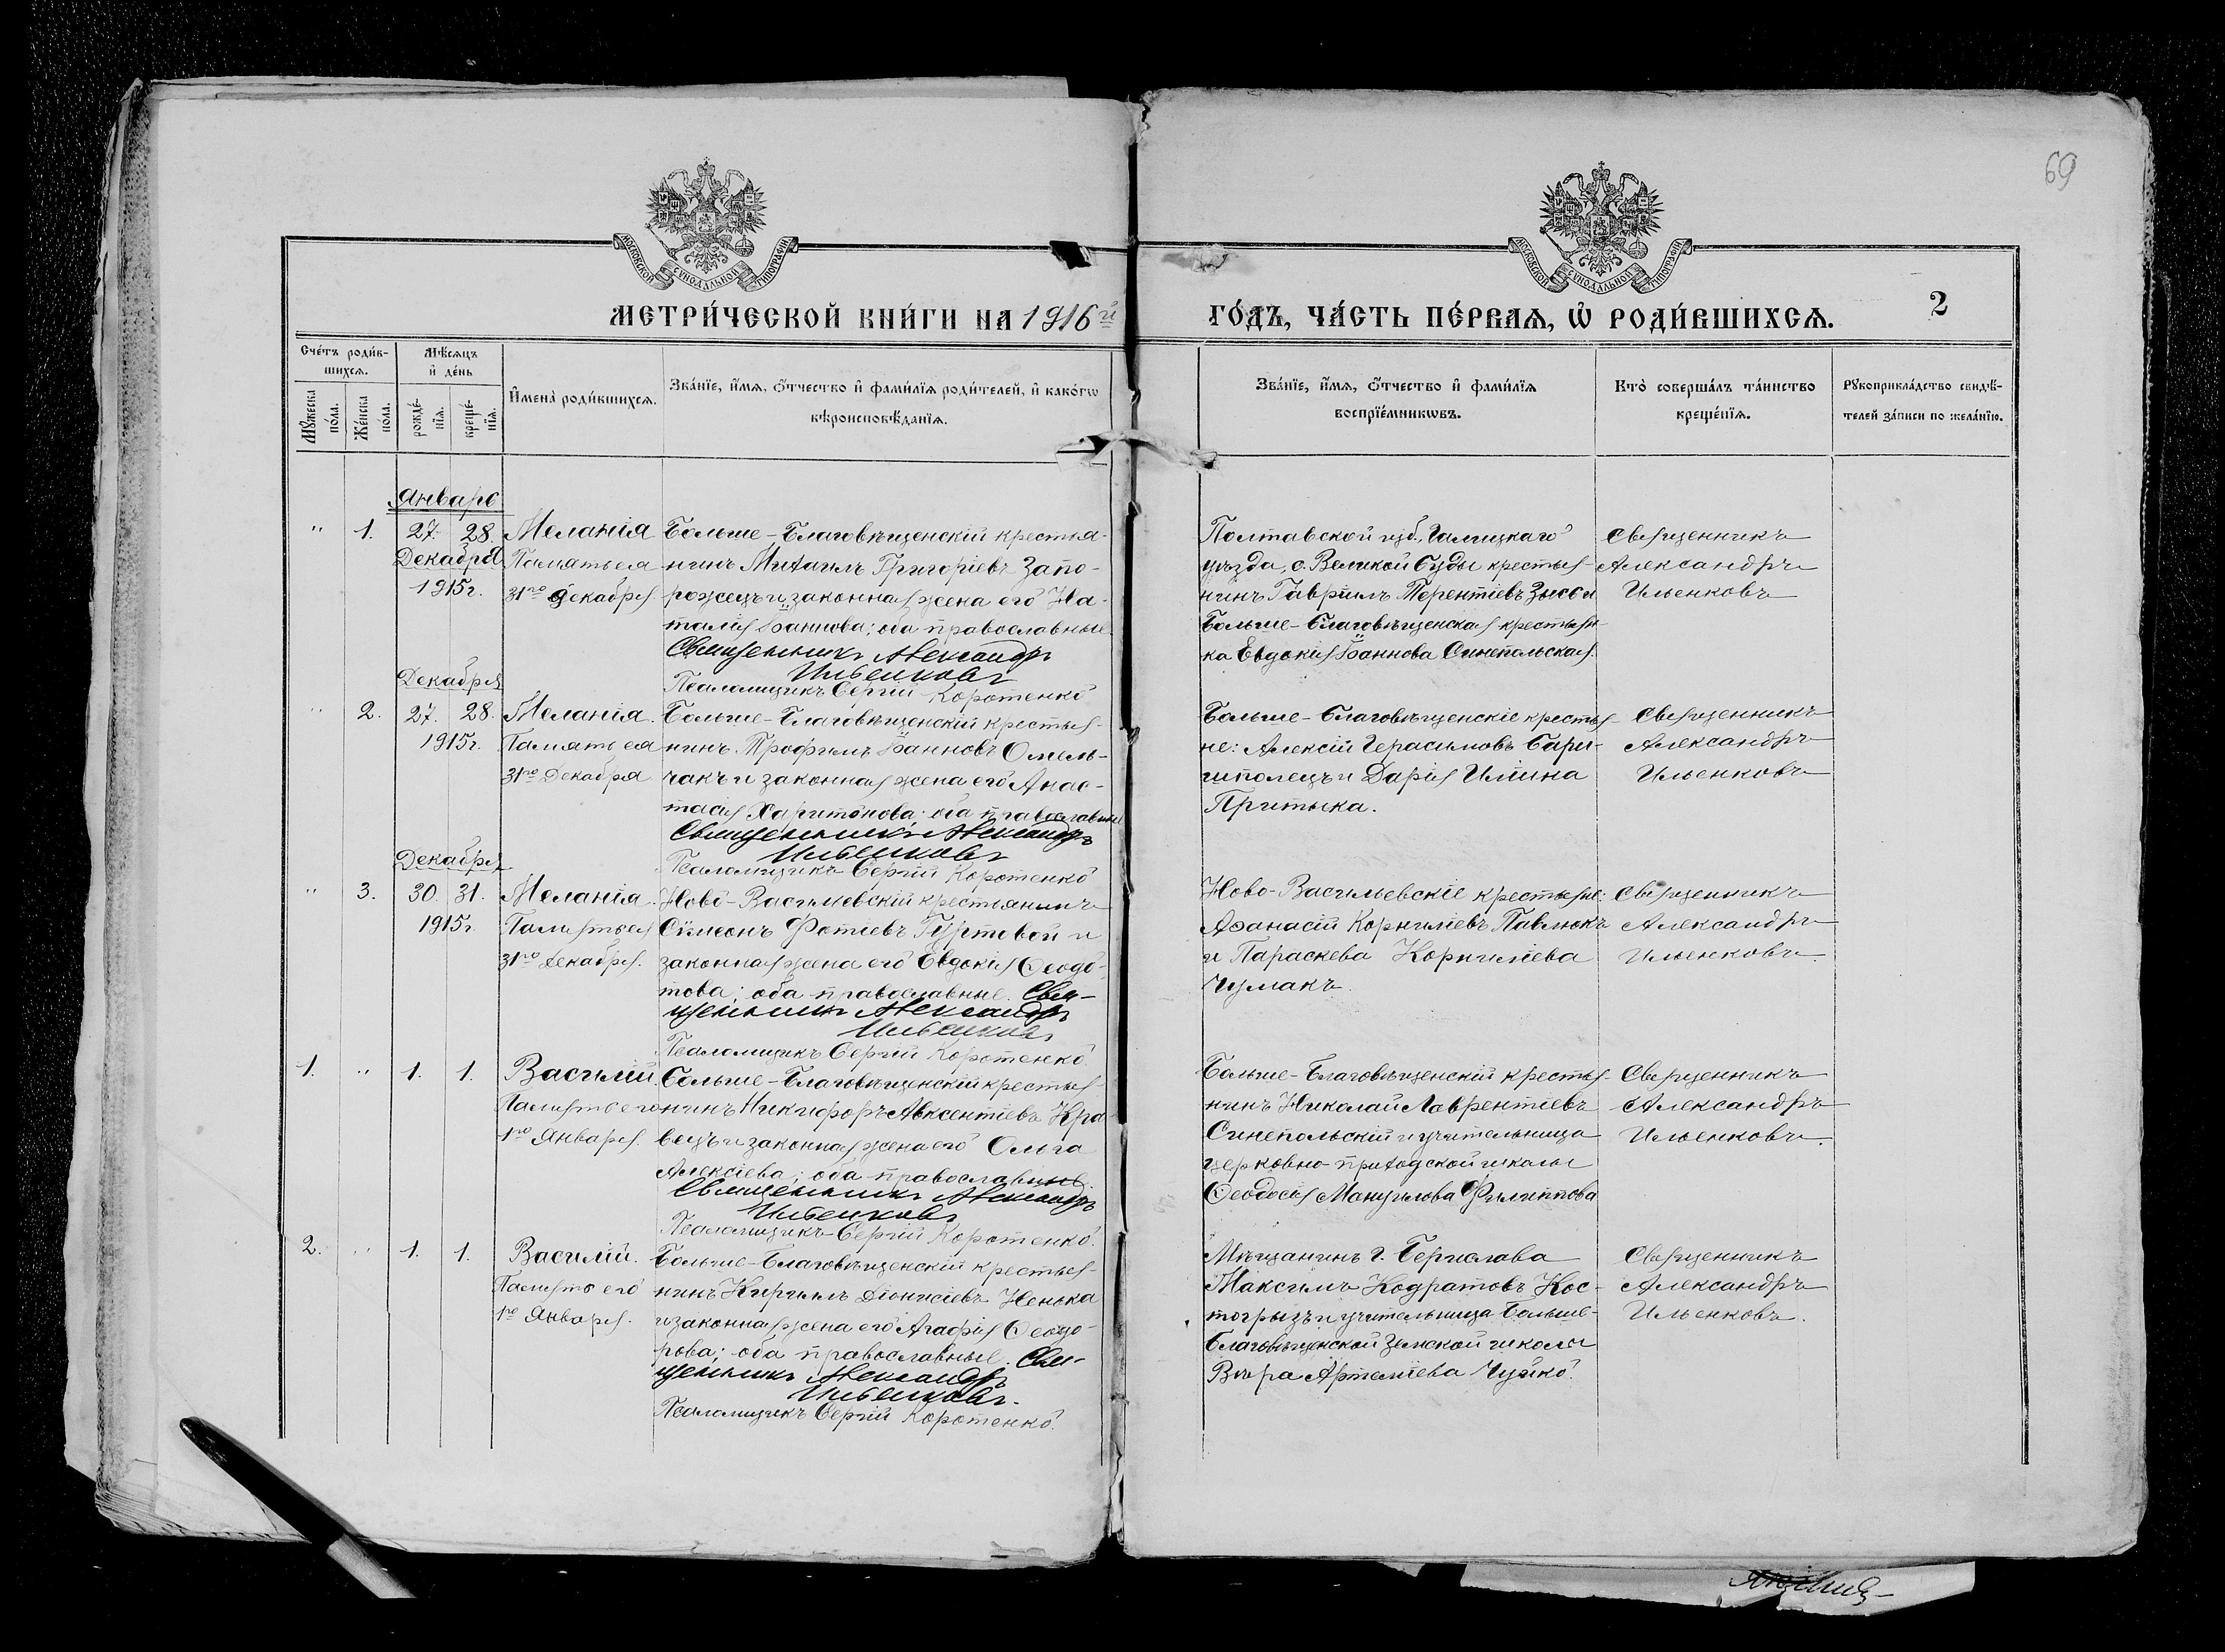 69
МОСКОВСКОЙ СУНОДАЛЬНОЙ ТИПОГРАФІИ
МОСКОВСКОЙ СУНОДАЛЬНОЙ ТИПОГРАФІИ
МЕТРИ́ЧЕСКОЙ КНИ́ГИ НА 1916й
ГО́ДЪ, ЧА́СТЬ ПЕ́РВАЯ, Ѡ҆ РОДИ́ВШИХСЯ.
2
Сче́тъ роди́в-
шихся.
Мѣ́сяцъ
и҆ де́нь
Мꙋ́жеска
по́ла.
Же́нска
по́ла.
рожде́-
нїя.
креще́-
нїя.
И҆мена̀ роди́вшихся.
Зва́нїе, и҆́мя, ѻ҆́тчество и҆ фами́лїя роди́телей, и҆ како́гѡ
вѣроисповѣ́данїя.
Зва́нїе, и҆́мя, ѻ҆́тчество и҆ фами́лїя
воспрїе́мникѡвъ.
Кто̀ соверша́лъ та́инство
креще́нїя.
Рꙋкоприкла́дство свидѣ́-
телей за́писи по жела́нїю.
Январь
" 1. 27. 28. Меланія
Декабря
1915г.
Память ея
31го декабря.
Больше-Благовѣщенскій крестья-
нинъ Михаилъ Григоріевъ Запо-
рожецъ и законная жена его На-
талія Іоаннова; оба православные.
Священникъ Александръ
Ильенковъ
Псаломщикъ Сергій Коротенко
Полтавской губ., Гадяцкаго
уѣзда, с. Великой Буды крестья-
нинъ Гавріилъ Терентіевъ
Больше-Благовѣщенская крестьян-
ка Евдокія Іоаннова Синепольская.
Священникъ
Александръ
Ильенковъ
Декабря
" 2. 27. 28. Меланія.
1915г.
Память ея
31го Декабря
Больше-Благовѣщенскій крестья-
нинъ Трофимъ Іоанновъ Омель-
чакъ и законная жена его Анас-
тасія Харитонова; оба православные
Священникъ Александръ
Ильенковъ
Псаломщикъ Сергій Коротенко
Больше-Благовѣщенскіе крестья-
не: Алексій Герасимовъ Бари-
шполецъ и Дарія Иліина
Притыка.
Священникъ
Александръ
Ильенковъ
Декабря
" 3. 30. 31. Меланія.
1915г.
Память ея
31го Декабря.
Ново-Васильевскій крестьянинъ
Сѵмеонъ Фотіевъ Гуртовой и
законная жена его Евдокія Ѳеодо-
това; оба православные. Свя-
щенникъ Александръ
Ильенковъ
Псаломщикъ Сергій Коротенко.
Ново-Васильевскіе крестьяне:
Аѳанасій Корниліевъ Павлюкъ
и Параскева Корниліева
Чумакъ.
Священникъ
Александръ
Ильенковъ.
1. " 1. 1. Василій.
Память его
1го Января.
Больше-Благовѣщенскій крестья-
нинъ Никифоръ Авксентіевъ Кра-
вецъ и законная жена его Ольга
Алексіева; оба православные.
Священникъ Александръ
Ильенковъ
Псаломщикъ Сергій Коротенко.
Больше-Благовѣщенскій крестья-
нинъ Николай Лаврентіевъ
Синепольскій и учительница
церковно-приходской школы
Ѳеодосія Мануилова Филиппова
Священникъ
Александръ
Ильенковъ.
2. " 1. 1. Василій.
Память его
1го Января.
Больше-Благовѣщенскій крестья-
нинъ Кириллъ Діонисіевъ Ненька
и законная жена его Агафія Ѳеодо-
рова; оба православные. Свя-
щенникъ Александръ
Ильенковъ.
Псаломщикъ Сергій Коротенко.
Мѣщанинъ г. Берислава
Максимъ Кодратовъ Кос-
тогрызъ и учительница Больше-
Благовѣщенской Земской школы
Вѣра Артеміева Чуйко.
Священникъ
Александръ
Ильенковъ.